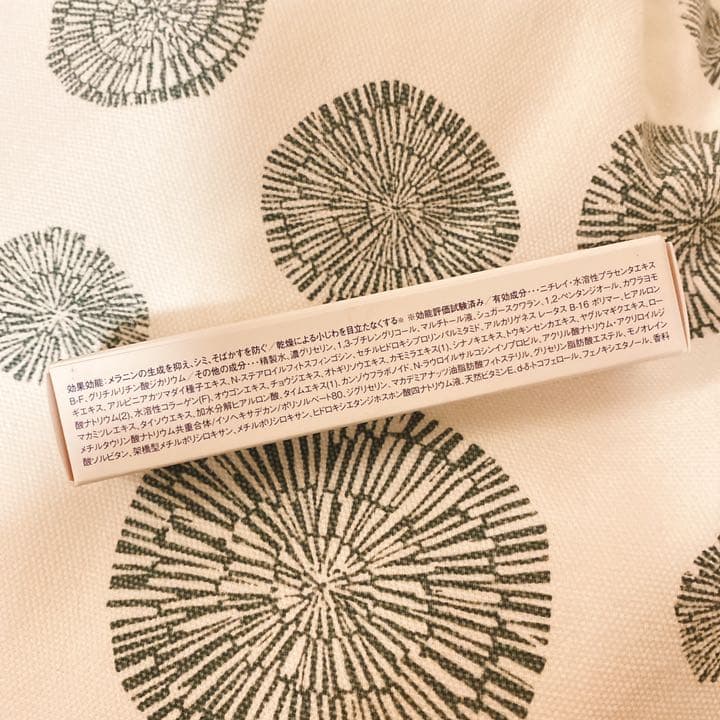 効果効能：メラニンの生成を抑え、シミ、そばかすを防ぐ／乾燥による小じわを目立たなくする※ ※効能評価試験済み／有効成分・・・ニチレイ・水溶性プラセンタエキス
B-F、グリチルリチン酸ジカリウム／その他の成分・・・精製水、濃グリセリン、1,3-ブチレングリコール、マルチトール液、シュガースクワラン、1,2-ペンタンジオール、カワラヨモ
ギエキス、アルピニアカツマダイ種子エキス、N-ステアロイルフィトスフィンゴシン、セチルヒドロキシプロリンパルミタミド、アルカリゲネス レータス B-16 ポリマー、ヒアルロン
酸ナトリウム(2)、水溶性コラーゲン(F)、オウゴンエキス、チョウジエキス、オトギリソウエキス、カモミラエキス(1)、シナノキエキス、トウキンセンカエキス、ヤグルマギクエキス、ロー
マカミツレエキス、タイソウエキス、加水分解ヒアルロン酸、タイムエキス(1)、カンゾウフラボノイド、N-ラウロイルサルコシンイソプロピル、アクリル酸ナトリウム・アクリロイルジ
メチルタウリン酸ナトリウム共重合体/イソヘキサデカン/ポリソルベート80、ジグリセリン、マカデミアナッツ油脂肪酸フィトステリル、グリセリン脂肪酸エステル、モノオレイン
酸ソルビタン、架橋型メチルポリシロキサン、メチルポリシロキサン、ヒドロキシエタンジホスホン酸四ナトリウム液、天然ビタミンE、d-δ-トコフェロール、フェノキシエタノール、香料